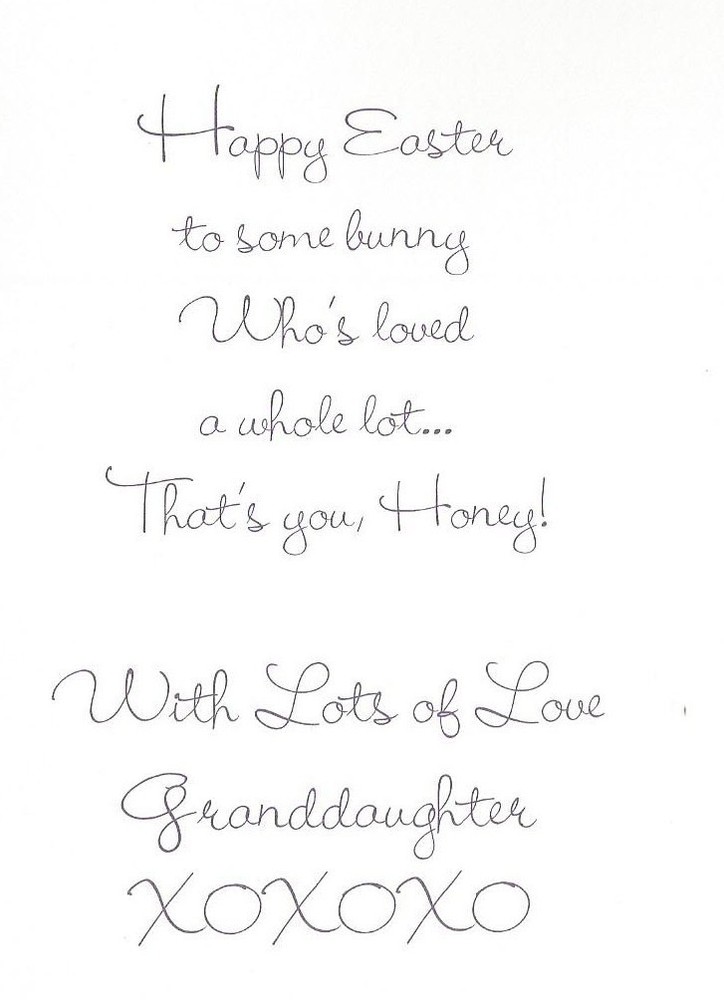 Happy Easter
to some bunny
Who's loved
a whole lot...
That's you, Honey!
With Lots of Love
Granddaughter
XOXOXO